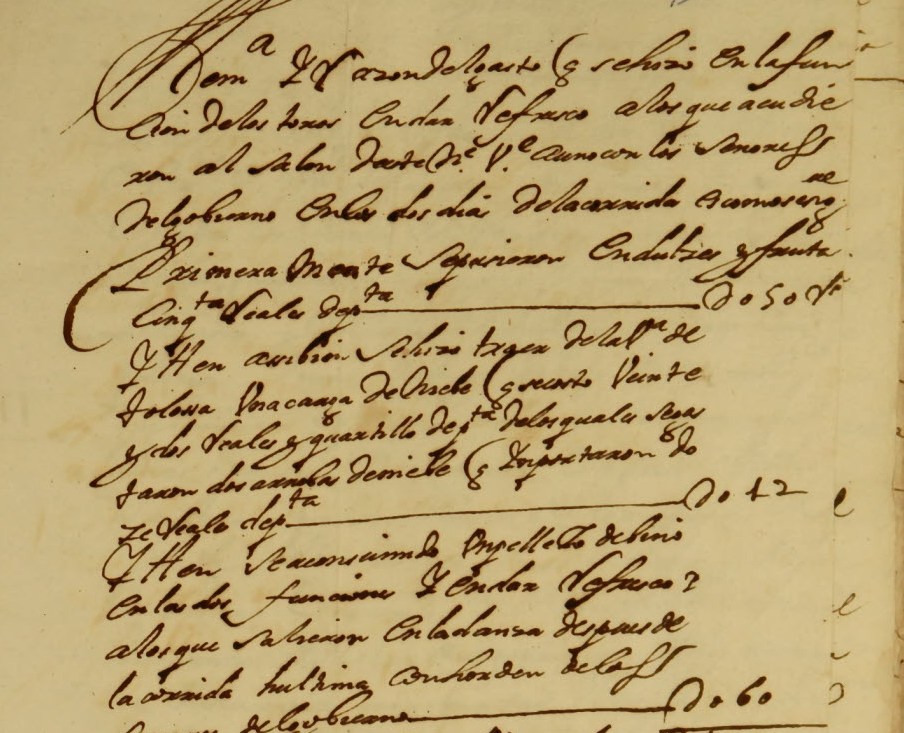 Mem.a Y Razon del gasto q se hizo en la fun
cion de los toros en dar Refresco a los que acudie
ron al salon deste con los señores SS
Del gobierno en los dos dias de la corrida es como se sigue
Primera Mente se pusieron en dulzes y fruta
Cinq.ta Reales de p.ta Do 50 Rs
Ytten se hizo traer de la V.a de
tolossa Una carga de Niebe q se costo Veinte
y dos Reales y quartillo de p.ta de los quales se gas
taron dos arrobas de niebe q Ymportaron do
ze Reales de p.ta Do 12
Ytten se consumido Un pellejo de bino
en las dos funciones Y en dar Refresco
a los que salieron en la danza despues de
la corrida hultima con horden de los SS
del gobierno Do 60